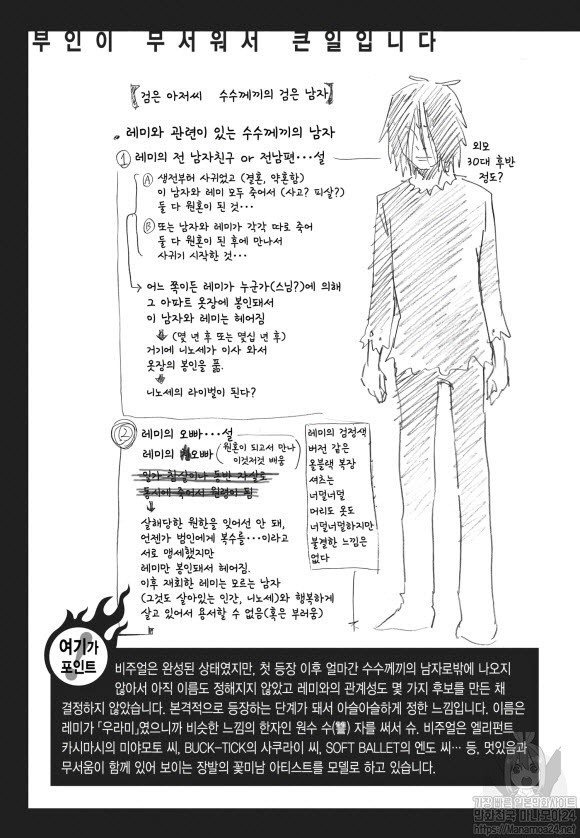 부인이 무서워서 큰일입니다
【검은 아저씨 수수께끼의 검은 남자】
• 레미와 관련이 있는 수수께끼의 남자
① 레미의 전 남자친구 or 전남편···설
Ⓐ 생전부터 사귀었고 (결혼, 약혼함)
이 남자와 레미 모두 죽어서 (사고? 피살?)
둘 다 원혼이 된 것···
Ⓑ 또는 남자와 레미가 각각 따로 죽어
둘 다 원혼이 된 후에 만나서
사귀기 시작한 것···
→ 어느 쪽이든 레미가 누군가(스님?)에 의해
그 아파트 옷장에 봉인돼서
이 남자와 레미는 헤어짐
↓ (몇 년 후 또는 몇십 년 후)
거기에 니노세가 이사 와서
옷장의 봉인을 풂.
↓
니노세의 라이벌이 된다?
외모
30대 후반
정도?
② 레미의 오빠···설
레미의 오빠 (원혼이 되고서 만나
이것저것 배움)
일가 참살이나 동반 자살로
동시에 죽어서 원령이 됨
↓
살해당한 원한을 잊어선 안 돼,
언젠가 범인에게 복수를···이라고
서로 맹세했지만
레미만 봉인돼서 헤어짐.
이후 재회한 레미는 모르는 남자
(그것도 살아있는 인간, 니노세)와 행복하게
살고 있어서 용서할 수 없음(혹은 부러움)
레미의 검정색
버전 같은
올블랙 복장
셔츠는
너덜너덜
머리도 옷도
너덜너덜하지만
불결한 느낌은
없다
여기가
포인트
비주얼은 완성된 상태였지만, 첫 등장 이후 얼마간 수수께끼의 남자로밖에 나오지
않아서 아직 이름도 정해지지 않았고 레미와의 관계성도 몇 가지 후보를 만든 채
결정하지 않았습니다. 본격적으로 등장하는 단계가 돼서 아슬아슬하게 정한 느낌입니다. 이름은
레미가 「우라미」였으니까 비슷한 느낌의 한자인 원수 수(讐) 자를 써서 슈. 비주얼은 엘리펀트
카시마시의 미야모토 씨, BUCK-TICK의 사쿠라이 씨, SOFT BALLET의 엔도 씨… 등, 멋있음과
무서움이 함께 있어 보이는 장발의 꽃미남 아티스트를 모델로 하고 있습니다.
https://Manamoa24.net